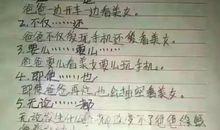 爸爸一边开车一边看美女。
2.不仅……还
爸爸不仅发爱玩手机还爱看美女。
3.要么……要么……
爸爸要么看美女要么玩手机。
4.即使……也
即使爸爸再忙也会抽空看美女。
5.无论……都
无论发生什么